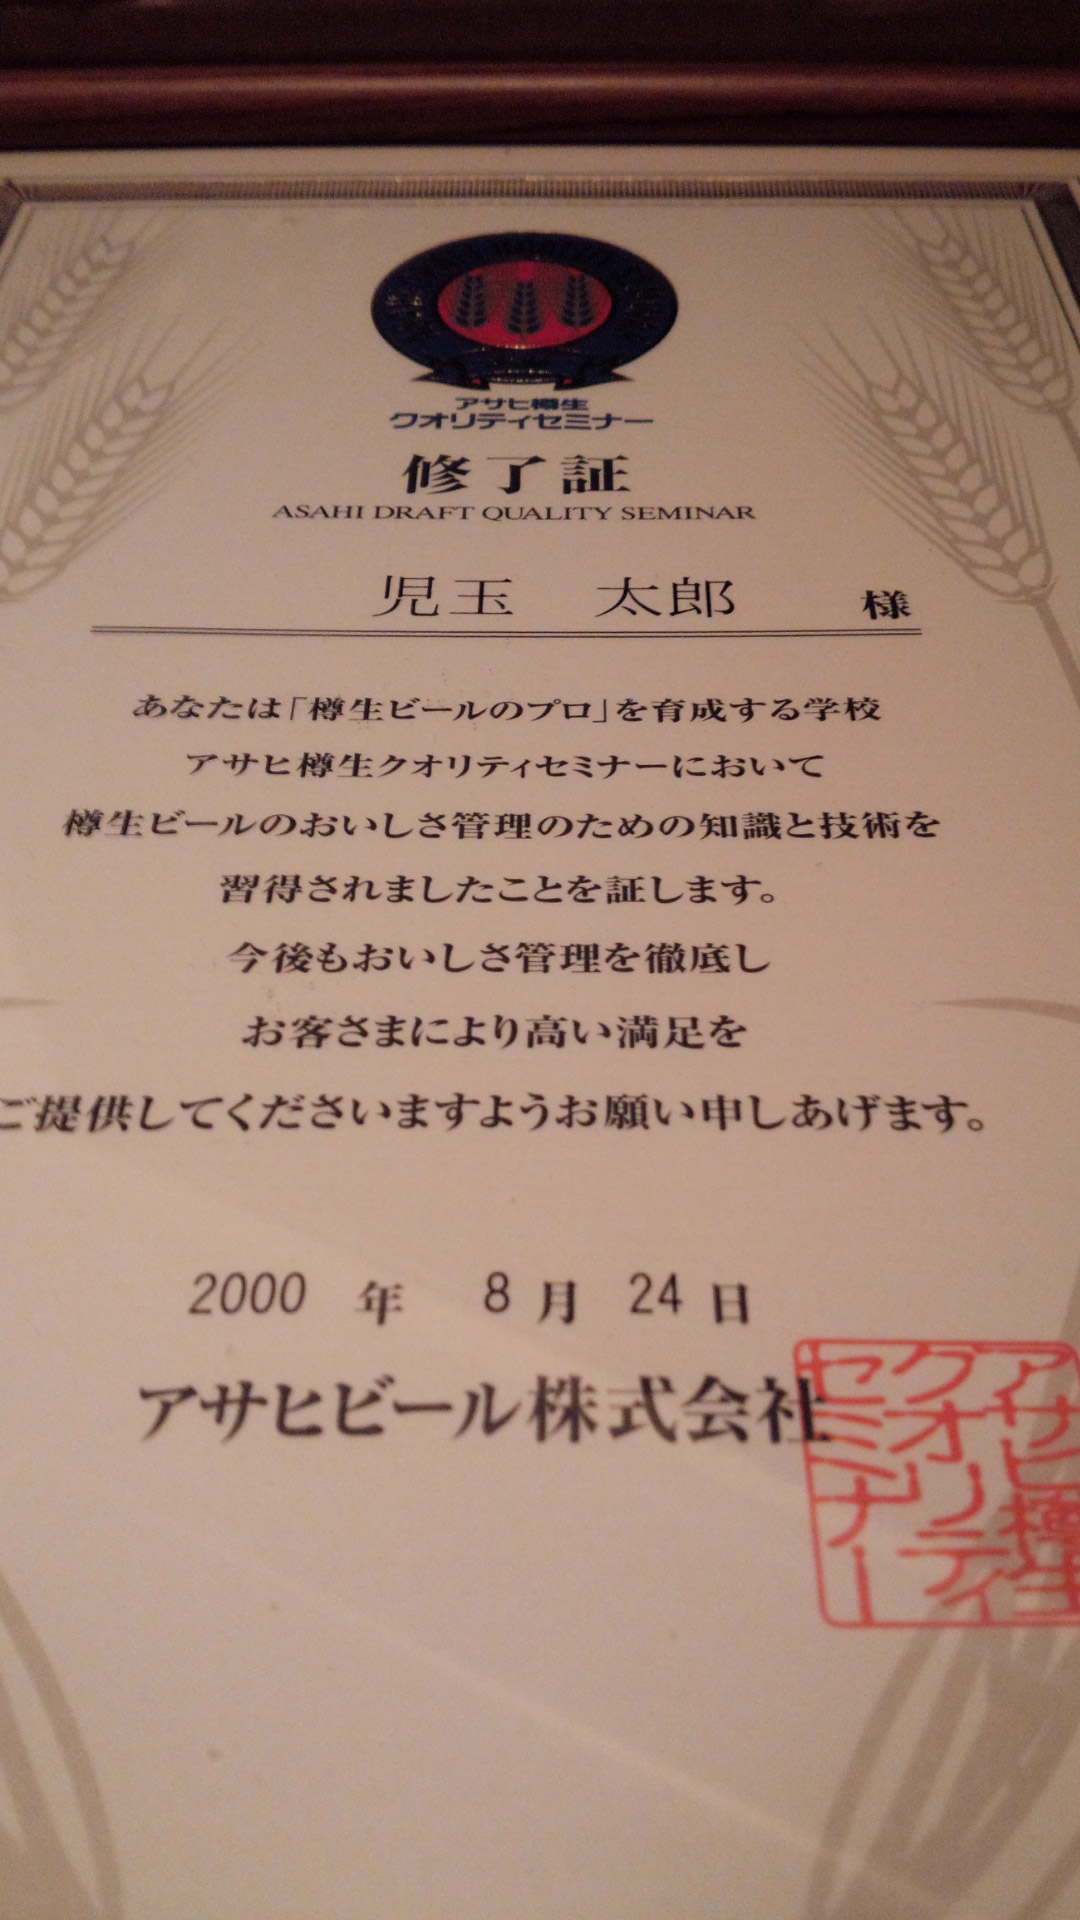 アサヒ樽生
クオリティセミナー
修了証
ASAHI DRAFT QUALITY SEMINAR
児玉 太郎 様
あなたは「樽生ビールのプロ」を育成する学校
アサヒ樽生クオリティセミナーにおいて
樽生ビールのおいしさ管理のための知識と技術を
習得されましたことを証します。
今後もおいしさ管理を徹底し
お客さまにより高い満足を
ご提供してくださいますようお願い申しあげます。
2000 年 8 月 24 日
アサヒビール株式会社
アサヒ樽生
クオリティ
セミナー